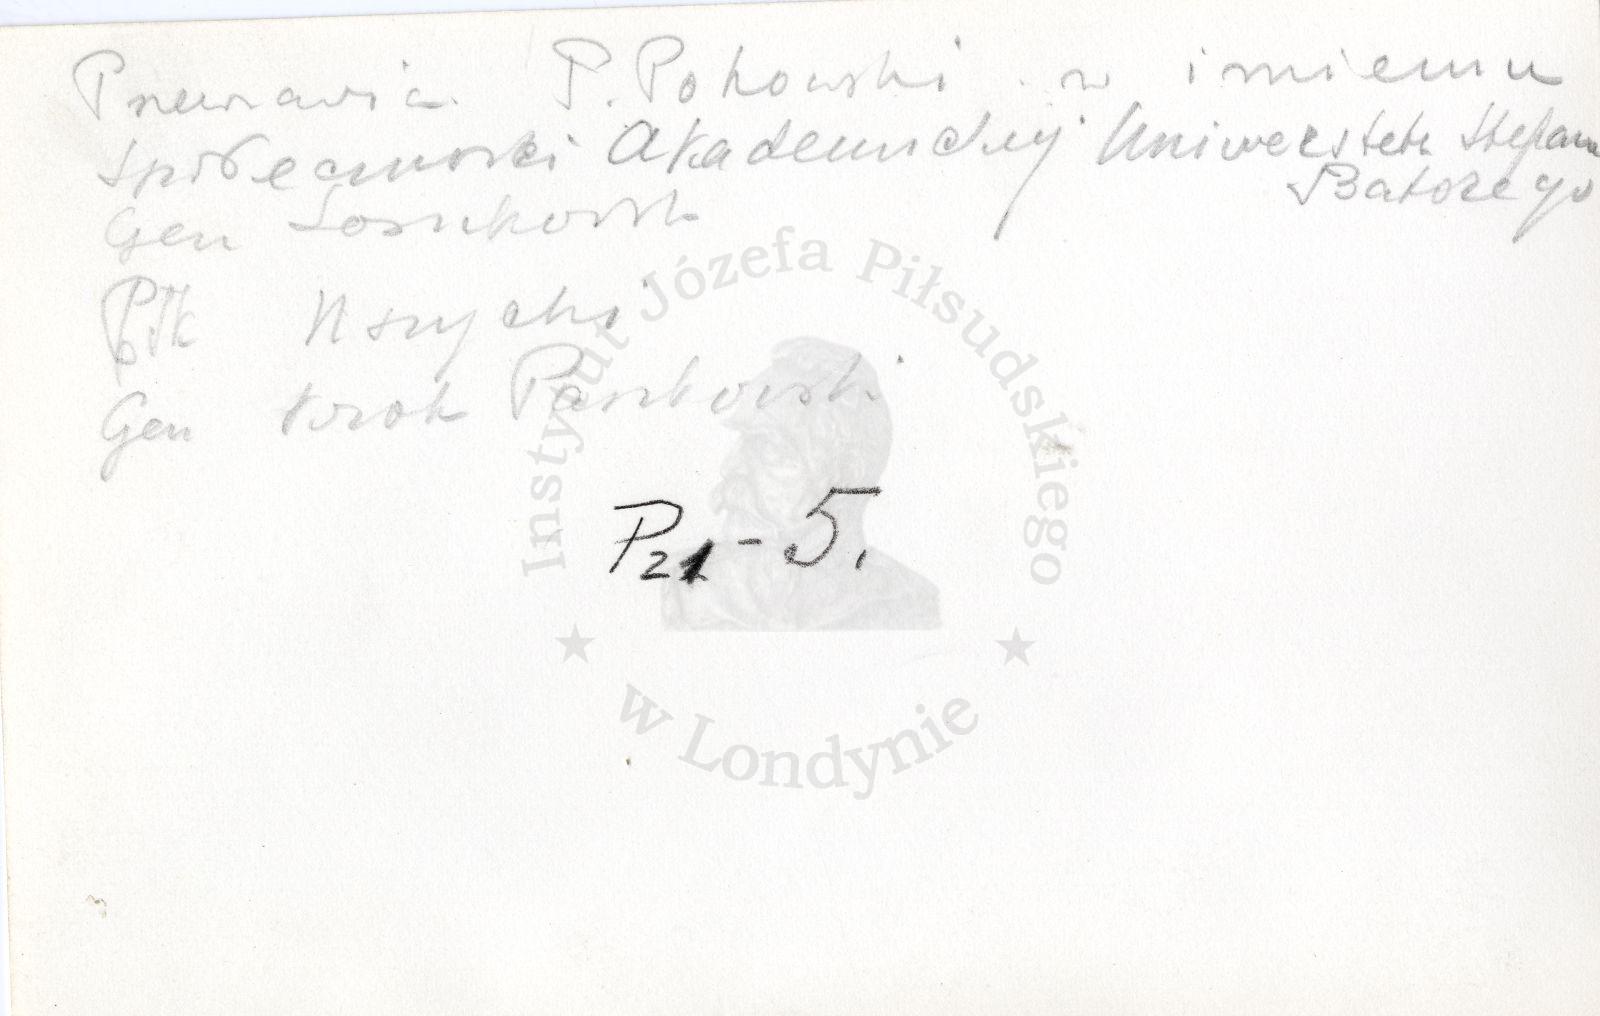 Przemawia P. Pokowski w imieniu
społeczności Akademickiej Uniwersytetu Stefana
Batorego
Gen Sosnkowski
Płk
Gen Paszkowski
Instytut Józefa Piłsudskiego
P21-5.
w Londynie